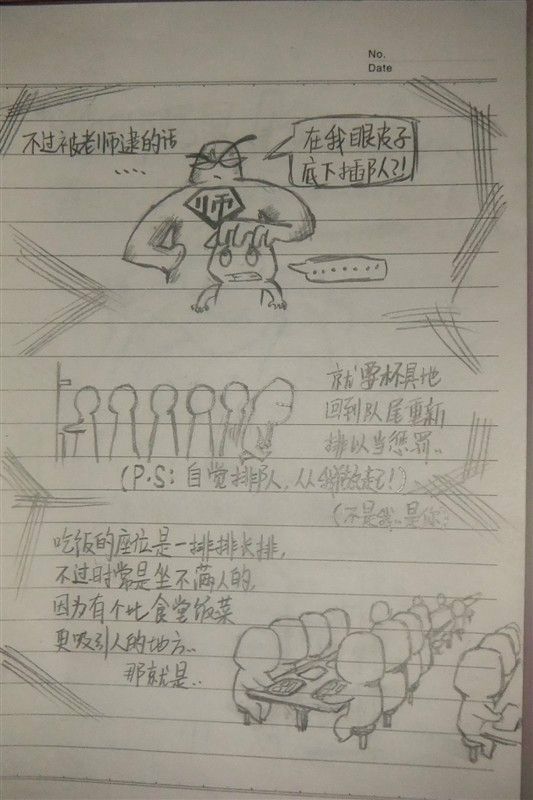 No.
Date
不过被老师逮的话
.....
在我眼皮子
底下插队?!
师
......
就要杯具地
回到队尾重新
排以当惩罚..
(P.S: 自觉排队,从我做起!)
(不是我..是你:
吃饭的座位是一排排长排,
不过时常是坐不满人的.
因为有个比食堂饭菜
更吸引人的地方..
那就是..